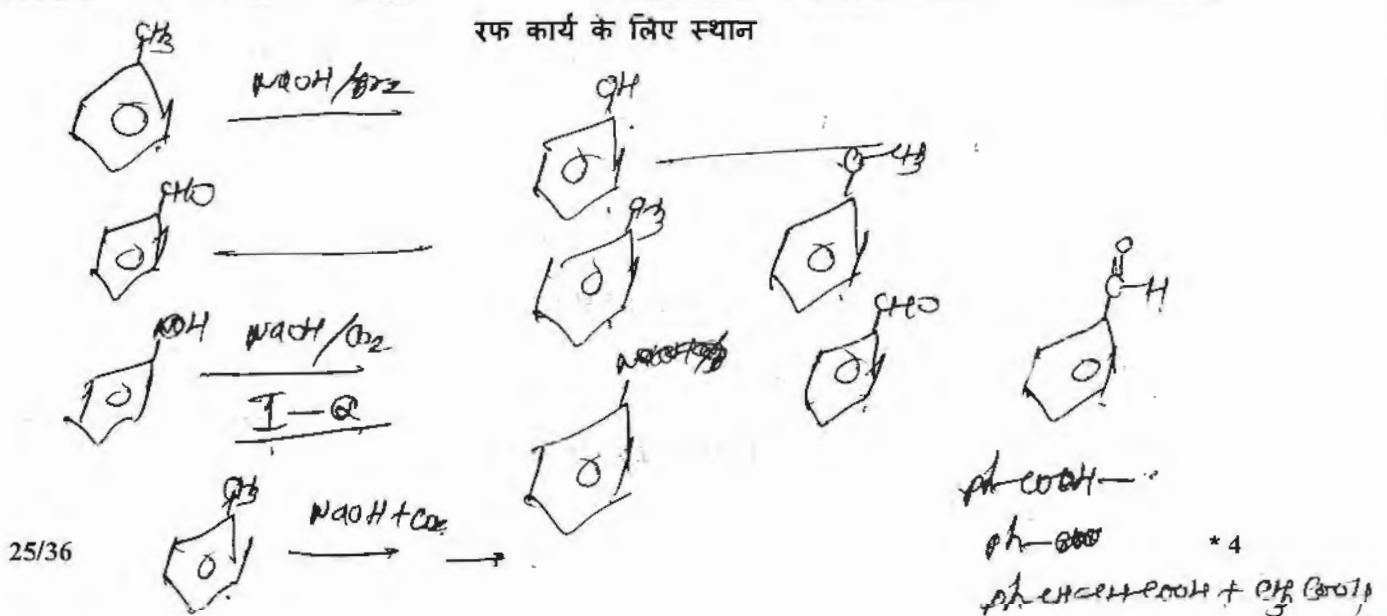 रफ कार्य के लिए स्थान
CH3
NaOH/Br2
OH
O-CH3
CHO
CH3
O
C-H
CHO
OH
NaOH/CO2
I-Q
CH3
NaOH + CO2
ph-COOH-
ph-
ph CH=CH-COOH + CH3COOH
25/36
* 4